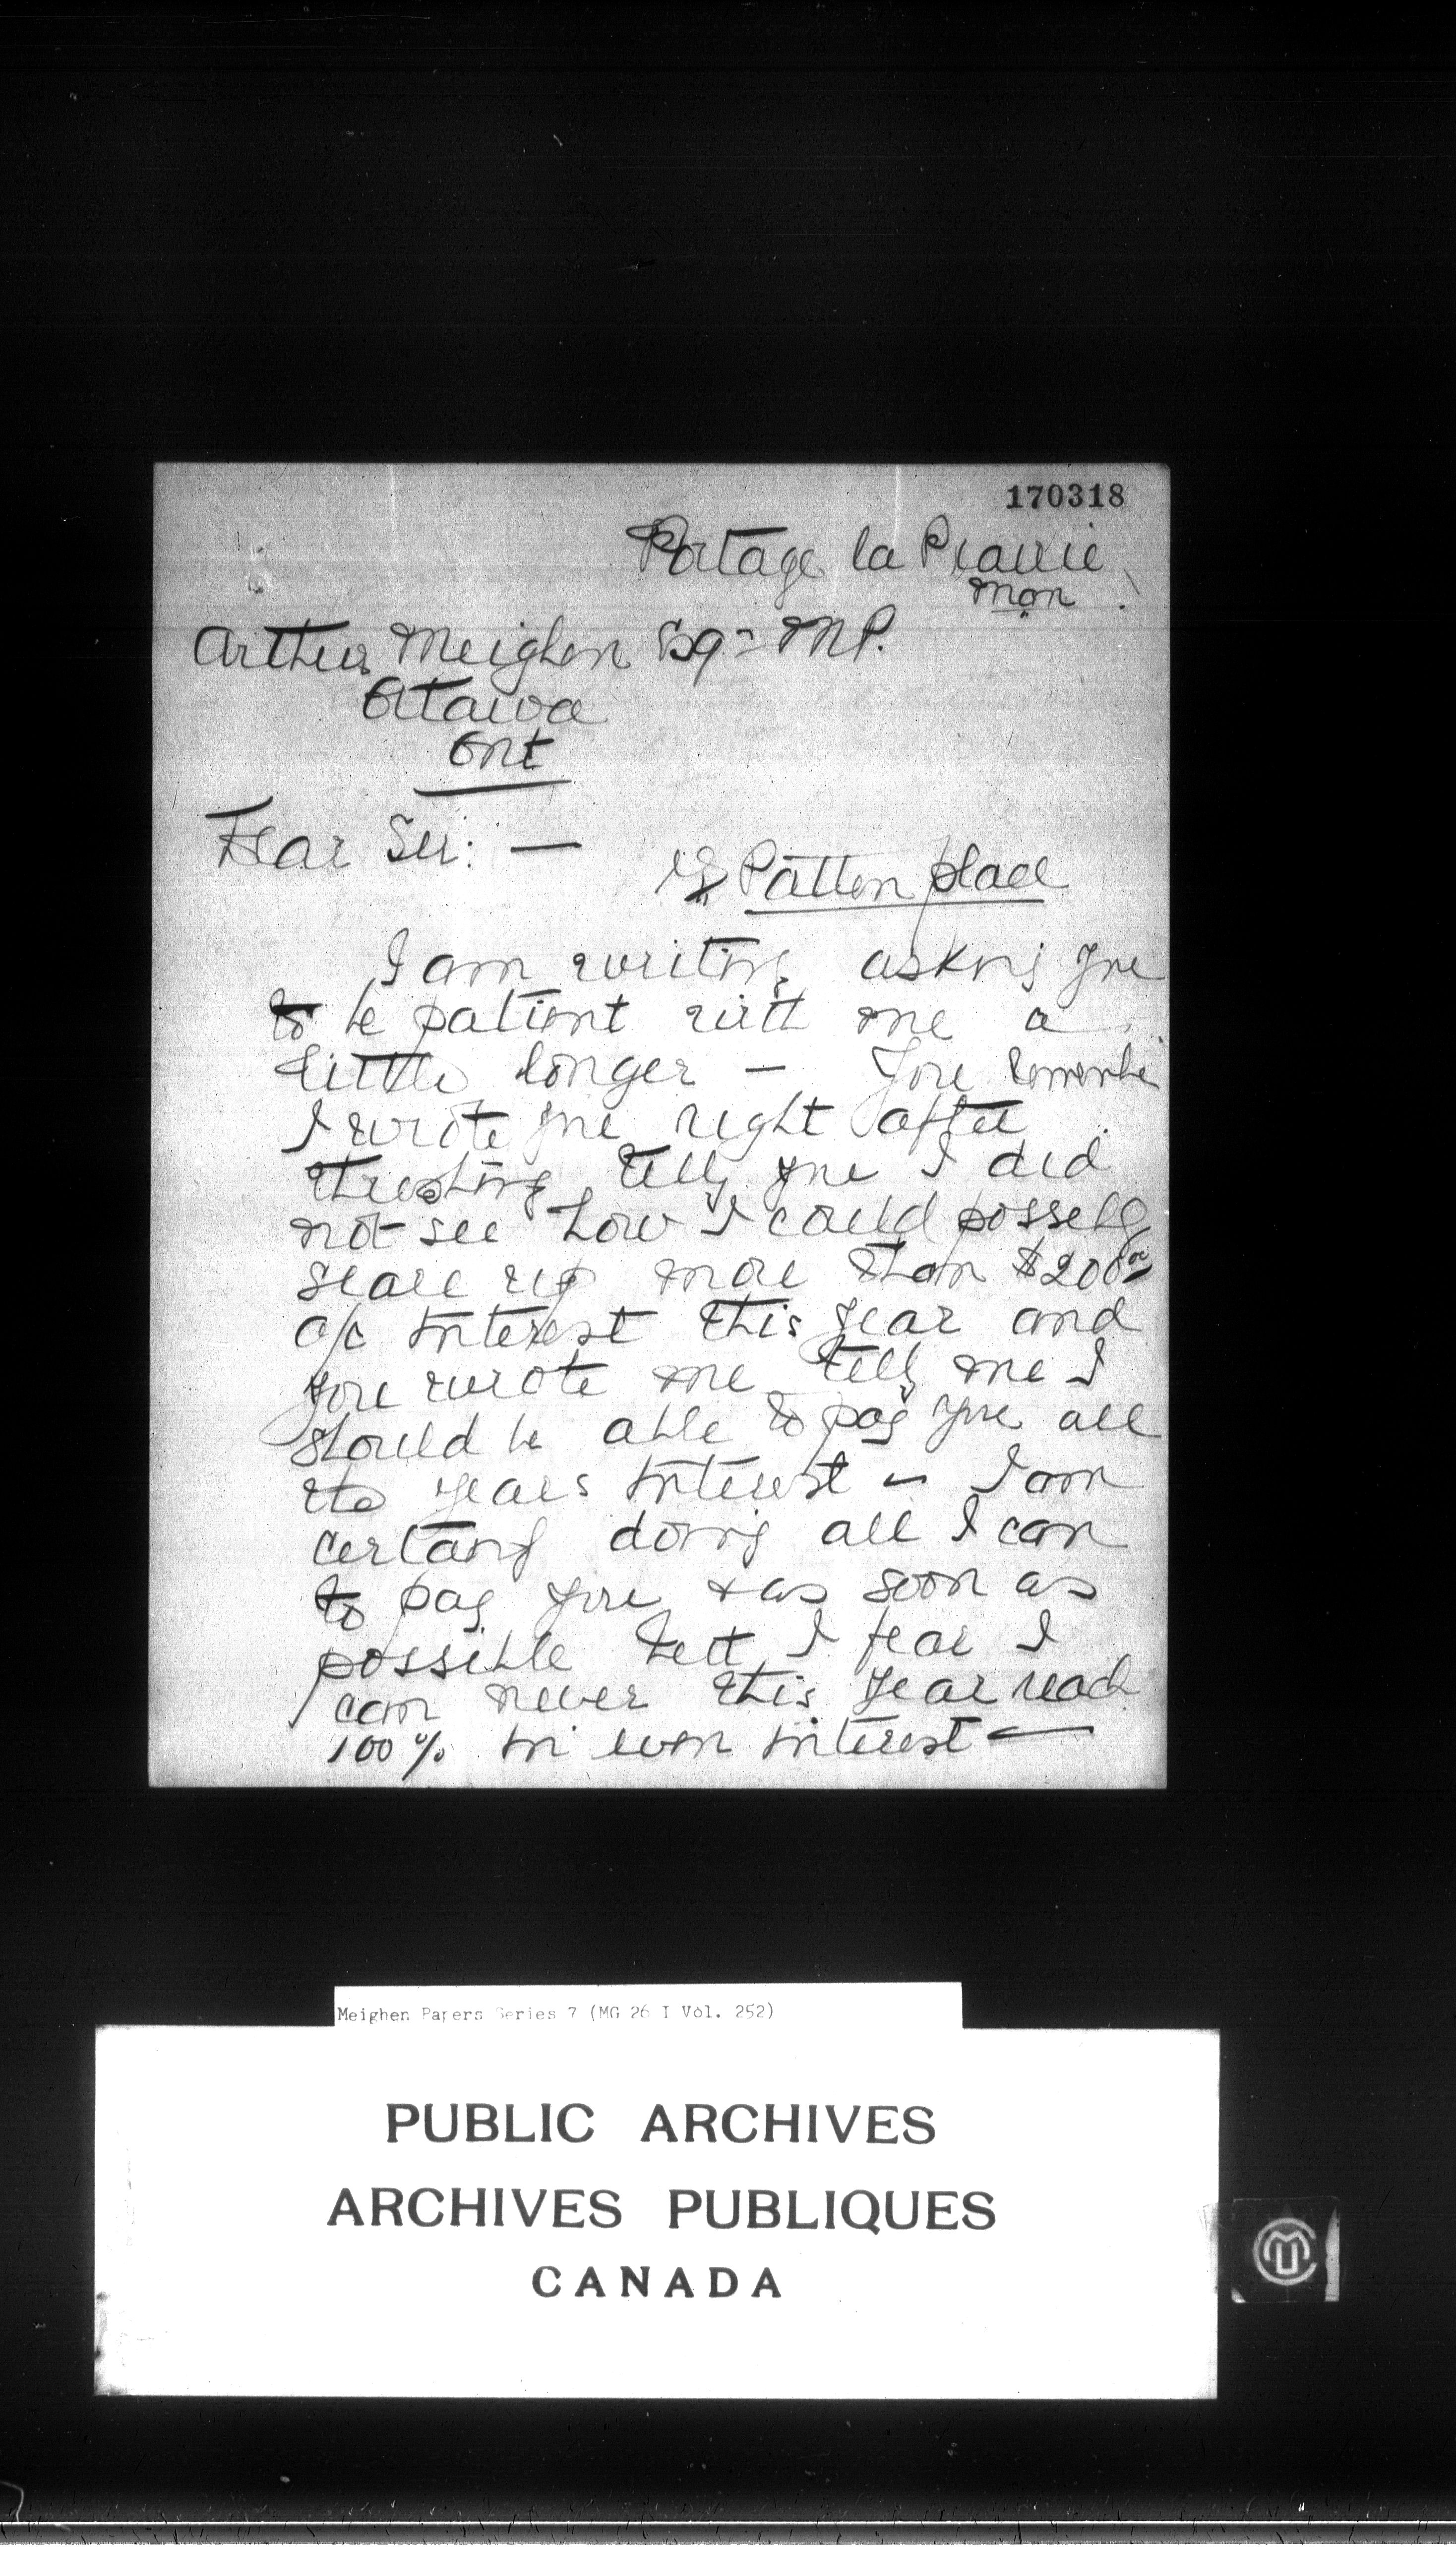 170318
Portage la Prairie
Man
Arthur Meighen Esq- MP.
Ottawa
Ont
Dear Sir: —
Patton place
I am writing asking you
to be patient with me a
little longer — You remember
I wrote you right after
threshing telly you I did
not see how I could possebly
scare up more than $200.00
a/c interest this year and
you wrote me telly me I
should be able to pay you all
the years interest - I am
certany doing all I can
to pay you & as soon as
possible but I fear I
can never this year reach
100% in even interest —
Meighen Papers Series 7 (MG 26 I Vol. 252)
PUBLIC ARCHIVES
ARCHIVES PUBLIQUES
CANADA